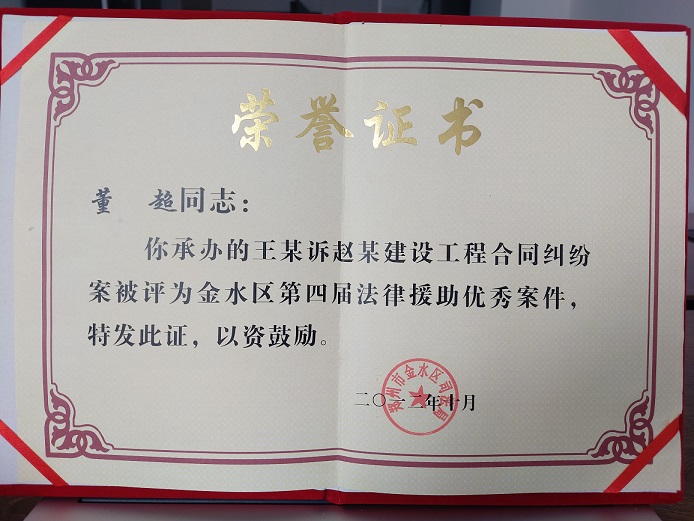 荣誉证书
董 超同志：
你承办的王某诉赵某建设工程合同纠纷
案被评为金水区第四届法律援助优秀案件，
特发此证，以资鼓励。
郑州市金水区司法局
二〇一二年十月